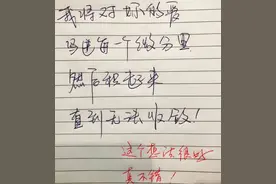 我将对你的爱
写进每一个微分里
然后积起来
直到无法收敛！
这个想法很好
真不错！